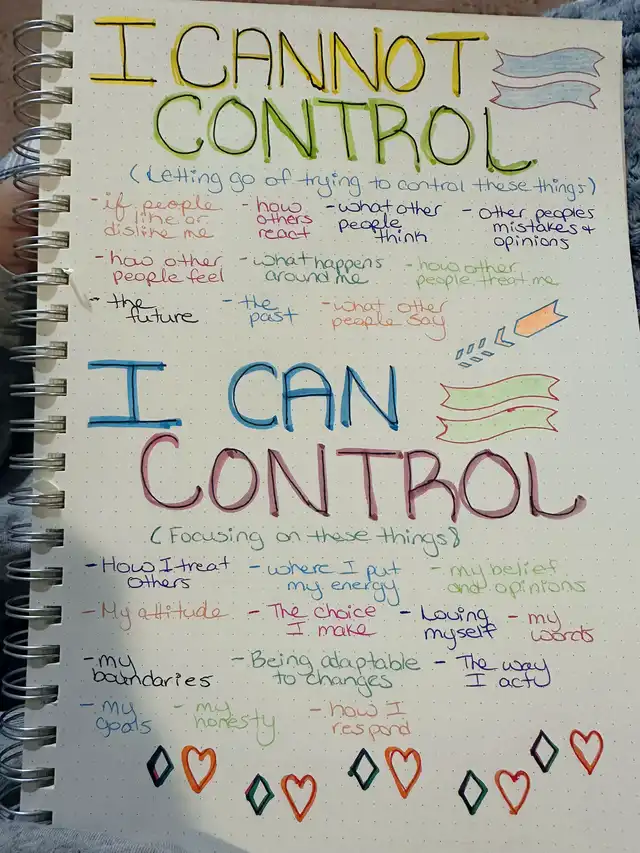 I CANNOT
CONTROL
(Letting go of trying to control these things)
- if people like or dislike me
- how others react
- what other people think
- other peoples mistakes + opinions
- how other people feel
- what happens around me
- how other people treat me
- the future
- the past
- what other people say
I CAN
CONTROL
(Focusing on these things)
- How I treat others
- where I put my energy
- my belief and opinions
- My attitude
- The choice I make
- Loving myself
- my words
- my boundaries
- Being adaptable to changes
- The way I act
- my goals
- my honesty
- how I respond